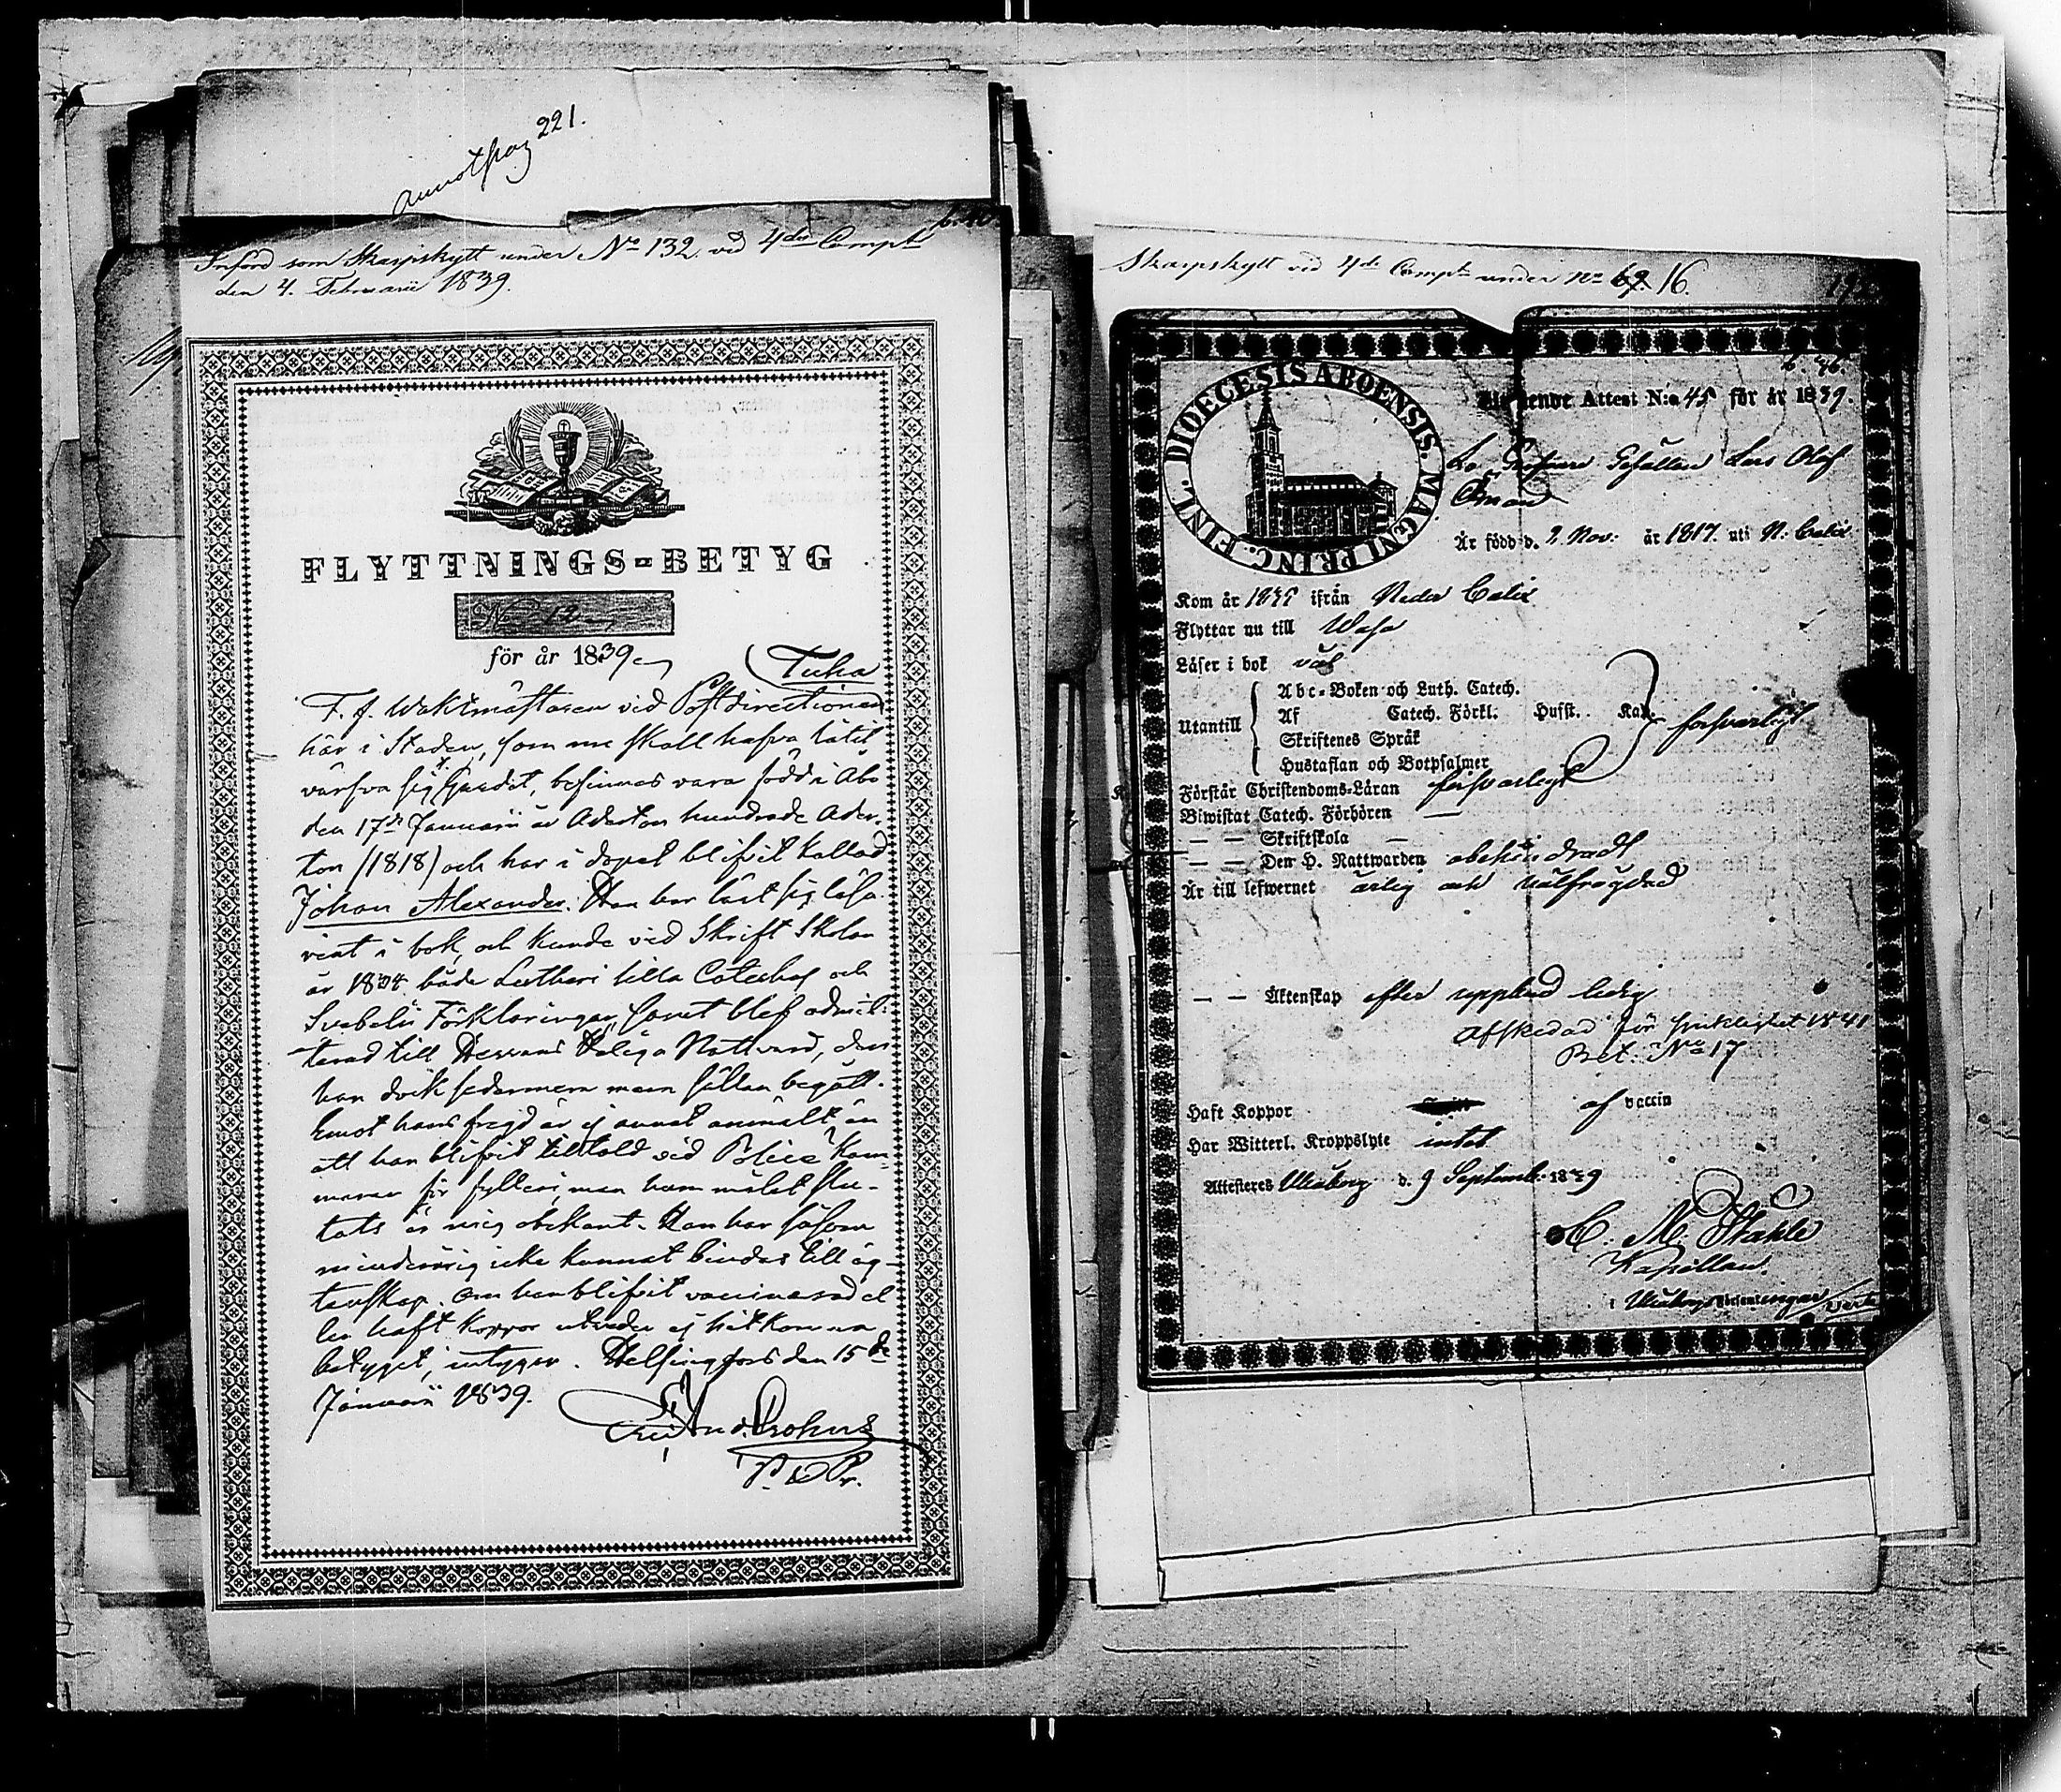 221.
b. 40
Införd som Skarpskytt under No 132. vid 4de Compt
den 4. Februarii 1839.
FLYTTNINGS-BETYG
No 12
för år 1839
F. f. Waktmästaren vid Postdirectionen
här i Staden, som nu skall hafva låtit
värfva sig t. Gardet, befinnes vara född i Åbo
den 17de Januarii år Aderton hundrade Ader-
ton (1818) och har i dopet blifvit kallad
Johan Alexander. Han har lärt sig läsa
rent i bok, och kunde vid Skrift Skolan
år 1834 både Lutheri lilla Cateches och
Svebelii Förklaringar, samt blef admit-
terad till Herrans Heliga Nattvard, den
han dock sedermera men sällan begått.
Emot hans frejd är ej annat anmält än
att han blifvit tilltald vid Police Kam-
maren för fylleri, men huru målet slu-
tats är mig obekant. Han har såsom
minderårig icke kunnat bindas till äg-
tenskap. Om han blifvit vaccinerad el
ler haft koppor utvisar ej hitkomna
betyget; intygar. Helsingfors den 15de
Januarii 1839.
Skarpskytt vid 4de Compt under No 69. 16.
b. 46.
DIOECESIS ABOENSIS. MAGNI PRINC. FINL.
Attest N:o 45 för år 1839.
Gesällen Lars Olof
Öman
Är född d. 2. Nov: år 1817. uti N. Calix
Kom år 1839 ifrån Neder Calix
Flyttar nu till Wasa
Läser i bok väl
Utantill
Abc-Boken och Luth. Catech.
Af Catech. Förkl. Husst. Kat.
Skriftenes Språk
Hustaflan och Botpsalmer
försvarligt
Förstår Christendoms-Läran försvarligt
Biwistat Catech. Förhören —
— — Skriftskola —
— — Den H. Nattwarden obehindradt
Är till lefwernet ärlig och välfrägdad
— — Äktenskap efter upplyst ledig
Afskedad för sjuklighet 1841
Bet. No 17
Haft Koppor af vaccin
Har Witterl. Kroppslyte intet
Attesteres Uleåborg d. 9 Septemb. 1839
C. M. Ståhle
Kapellan.
i Uleåborgs Församlingar